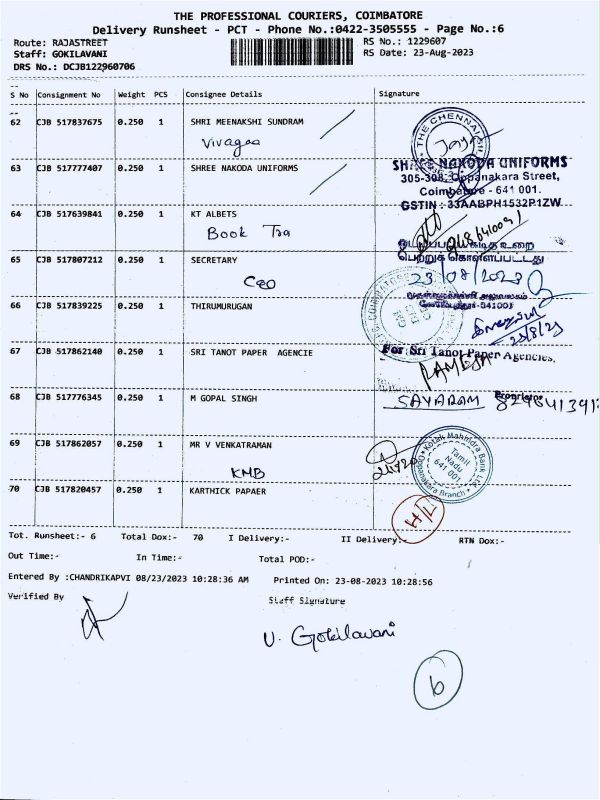 THE PROFESSIONAL COURIERS, COIMBATORE
Delivery Runsheet - PCT - Phone No.:0422-3505555 - Page No.:6
Route: RAJASTREET
RS No.: 1229607
Staff: GOKILAVANI
RS Date: 23-Aug-2023
DRS No.: DCJB122960706
S No Consignment No Weight PCS Consignee Details Signature
62 CJB 517837675 0.250 1 SHRI MEENAKSHI SUNDRAM
THE CHENNAI
Vivagaa
63 CJB 517777407 0.250 1 SHREE NAKODA UNIFORMS
SHREE NAKODA UNIFORMS
305-308, Oppanakara Street,
Coimbatore - 641 001.
GSTIN : 33AABPH1532P1ZW
64 CJB 517639841 0.250 1 KT ALBETS
Book Tra
65 CJB 517807212 0.250 1 SECRETARY
பெற்றுக் கொள்ளப்பட்டது
CEO
23/08/2023
66 CJB 517839225 0.250 1 THIRUMURUGAN
23/8/23
67 CJB 517862140 0.250 1 SRI TANOT PAPER AGENCIE
For Sri Tanot Paper Agencies,
RAMESH
68 CJB 517776345 0.250 1 M GOPAL SINGH
Proprietor
SAYARAM
69 CJB 517862057 0.250 1 MR V VENKATRAMAN
Kotak Mahindra Bank Ltd
Oppanakara Branch
Tamil
Nadu
641 001
KMB
70 CJB 517820457 0.250 1 KARTHICK PAPAER
H/L
Tot. Runsheet:- 6 Total Dox:- 70 I Delivery:- II Delivery:- RTN Dox:-
Out Time:- In Time:- Total POD:-
Entered By :CHANDRIKAPVI 08/23/2023 10:28:36 AM Printed On: 23-08-2023 10:28:56
Verified By Staff Signature
V. Gokilavani
6